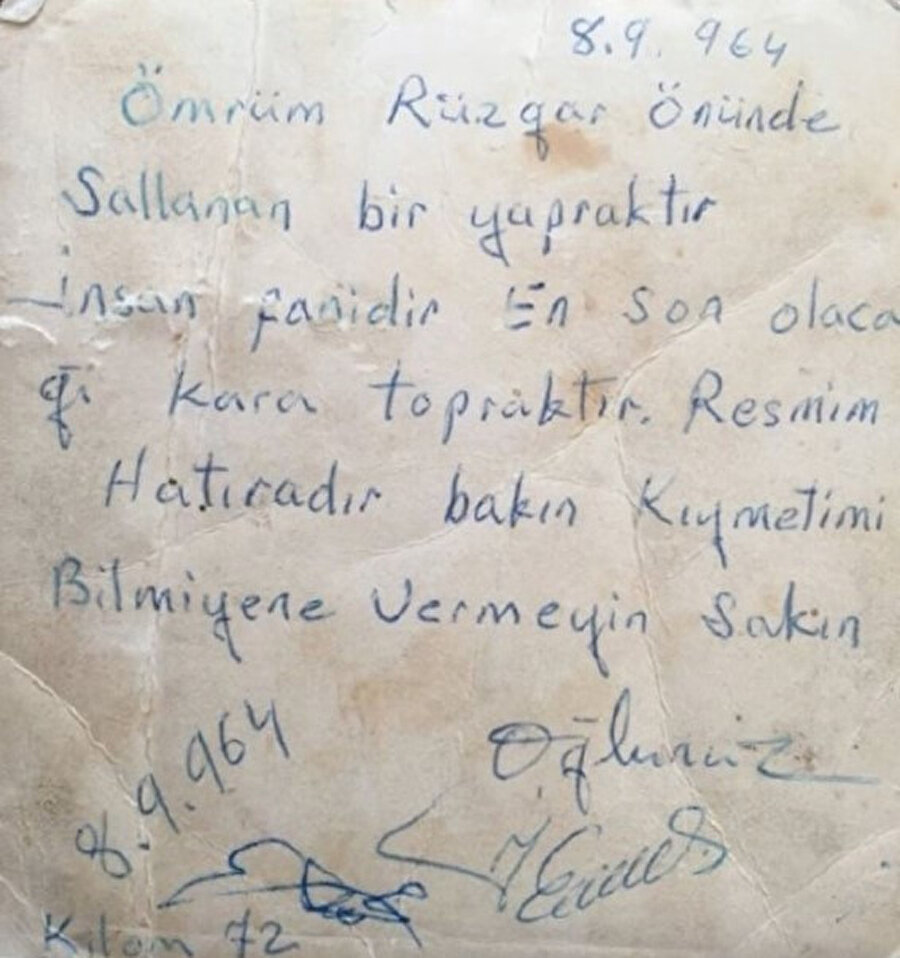 8.9.964
Ömrüm Rüzgar Önünde
Sallanan bir yapraktır
İnsan fanidir En son olaca
ği kara topraktır. Resmim
Hatıradır bakın Kıymetimi
Bilmiyene Vermeyin Sakın
Oğlunuz
8.9.964
72